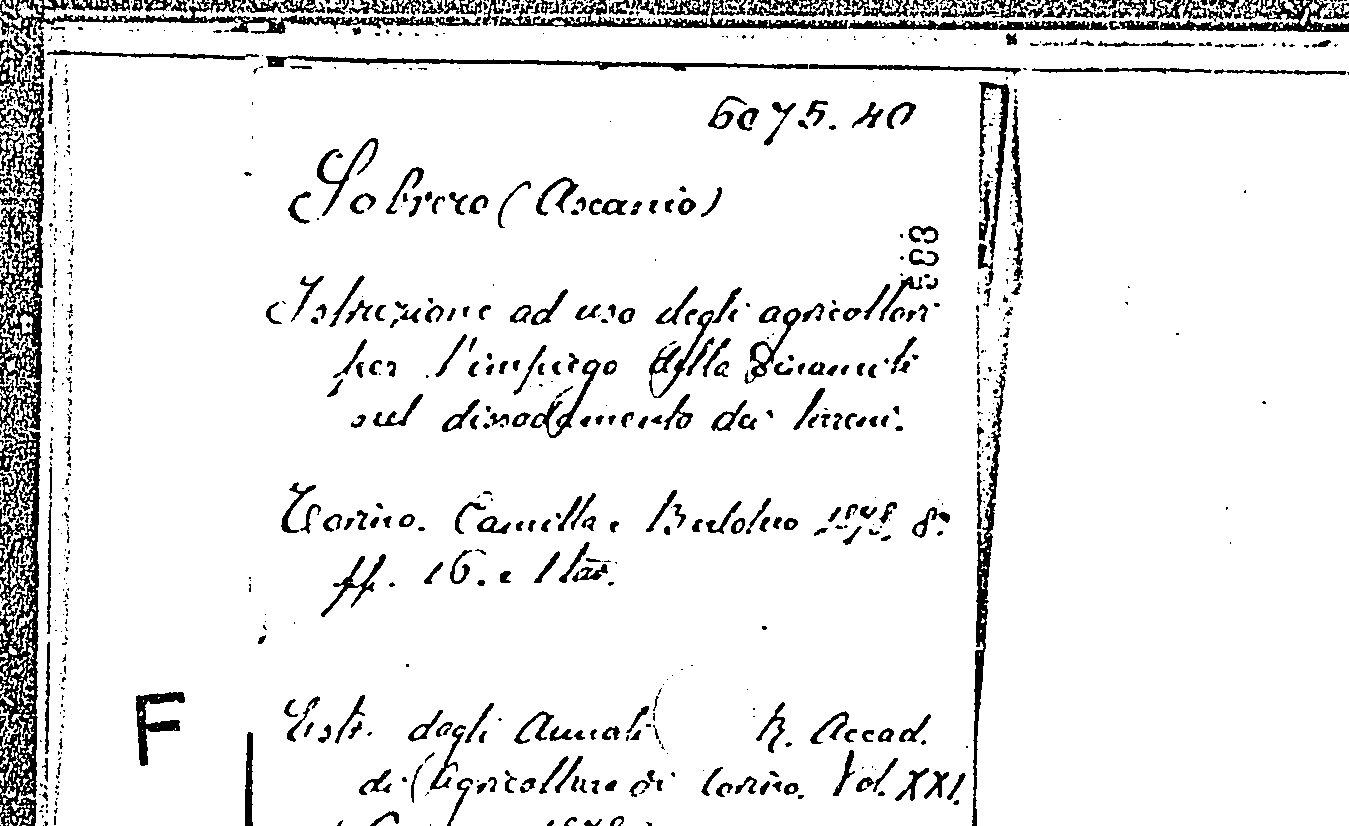 6075.40
Sobrero (Ascanio)
588
Istruzione ad uso degli agricoltori
per l'impiego della Dinamite
nel dissodamento dei terreni.
Torino. Camilla e Bertolero 1878. 8º
pp. 16. e 1 tav.
F
Estr. dagli Annali R. Accad.
di Agricoltura di Torino. Vol. XXI.